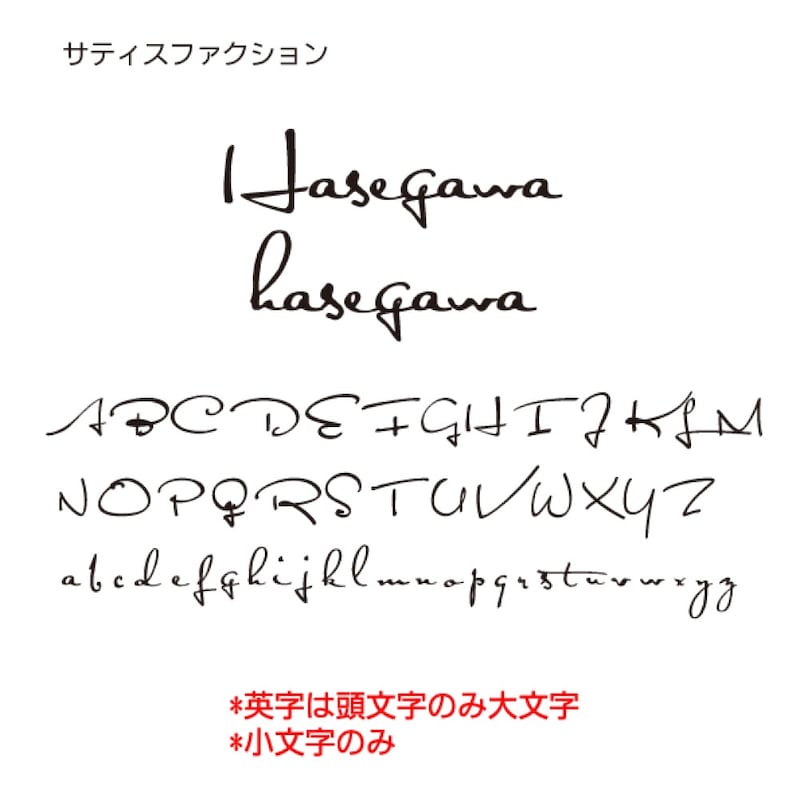 サティスファクション
Hasegawa
hasegawa
ABCDEFGHIJKLM
NOPQRSTUVWXYZ
abcdefghijklmnopqrstuvwxyz
*英字は頭文字のみ大文字
*小文字のみ